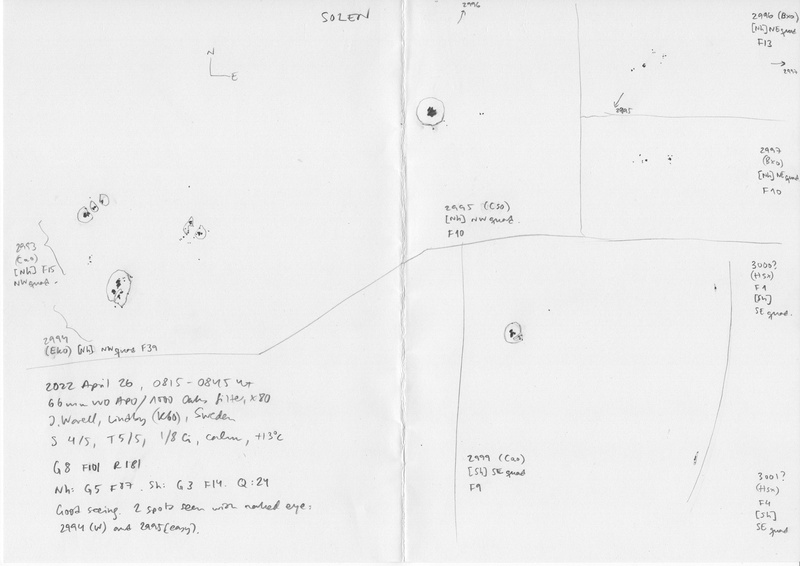 SOLEN
N
E
2993
(Cao)
[Nh] F15
NW quad.
2994
(Eko) [Nh] NW quad F39
2022 April 26, 0815-0845 UT
66mm WO APO/1000 Oaks filter, x80
J. Warell, Lindby (K60), Sweden
S 4/5, T 5/5, 1/8 Ci, calm, +13°C
G8 F101 R181
Nh: G5 F87. Sh: G3 F14. Q:24
Good seeing. 2 spots seen with naked eye:
2994 (W) and 2995 (easy).
2996
2995 (Cso)
[Nh] NW quad.
F10
2996 (Bxo)
[Nh] NE quad
F13
2994
2995
2997
(Bxo)
[Nh] NE quad
F10
2999 (Cao)
[Sh] SE quad
F9
3000?
(Hsx)
F1
[Sh]
SE quad.
3001?
(Hsx)
F4
[Sh]
SE quad